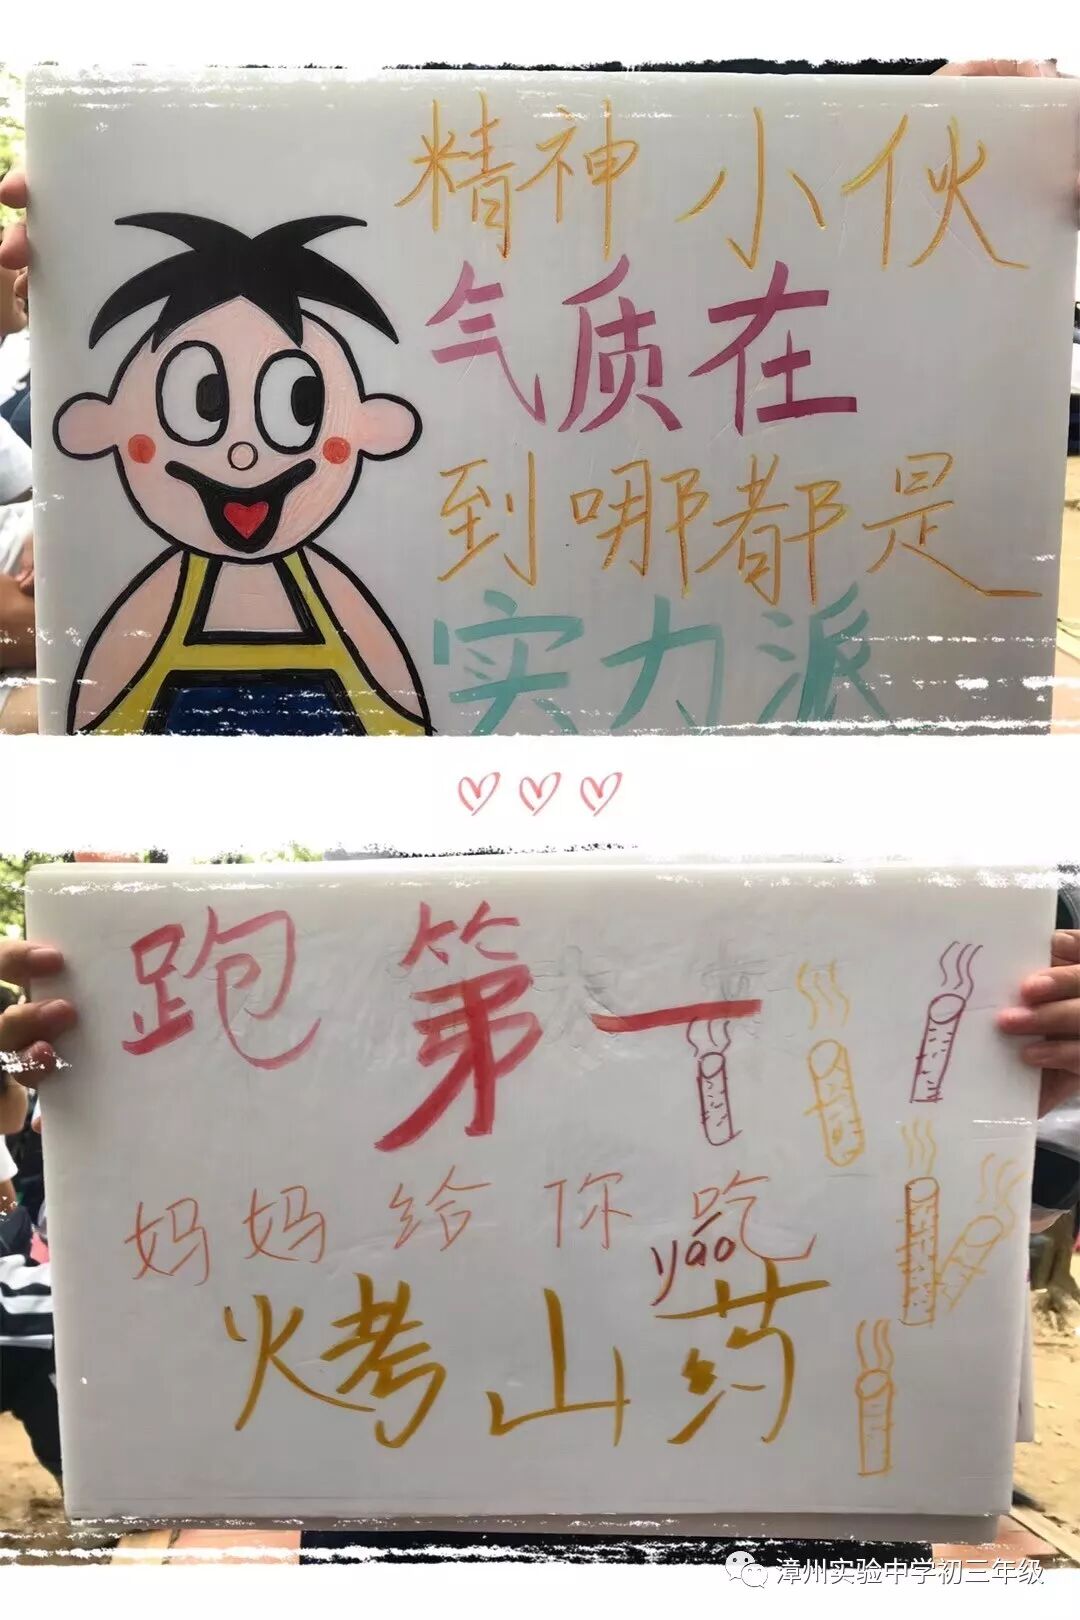 精神小伙
气质在
到哪都是
实力派
跑第一
妈妈给你吃
yào
烤山药
漳州实验中学初三年级